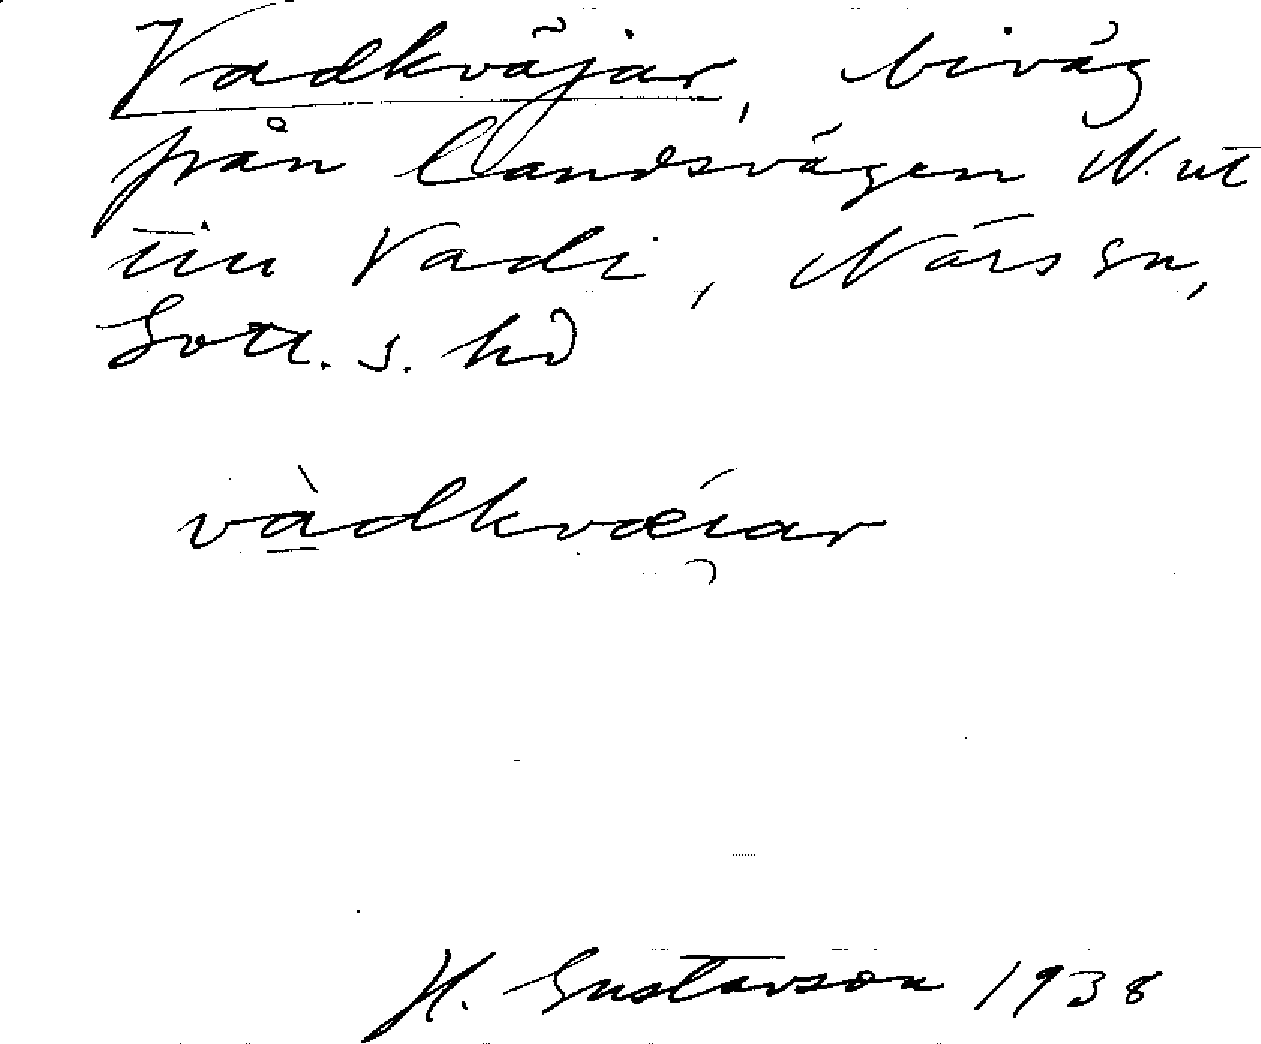 Vadkväjar, biväg
från landsvägen N. ut
till Vadi, Närs sn,
Gotl. s. hd
vàdkvæiar
H. Gustavson 1938